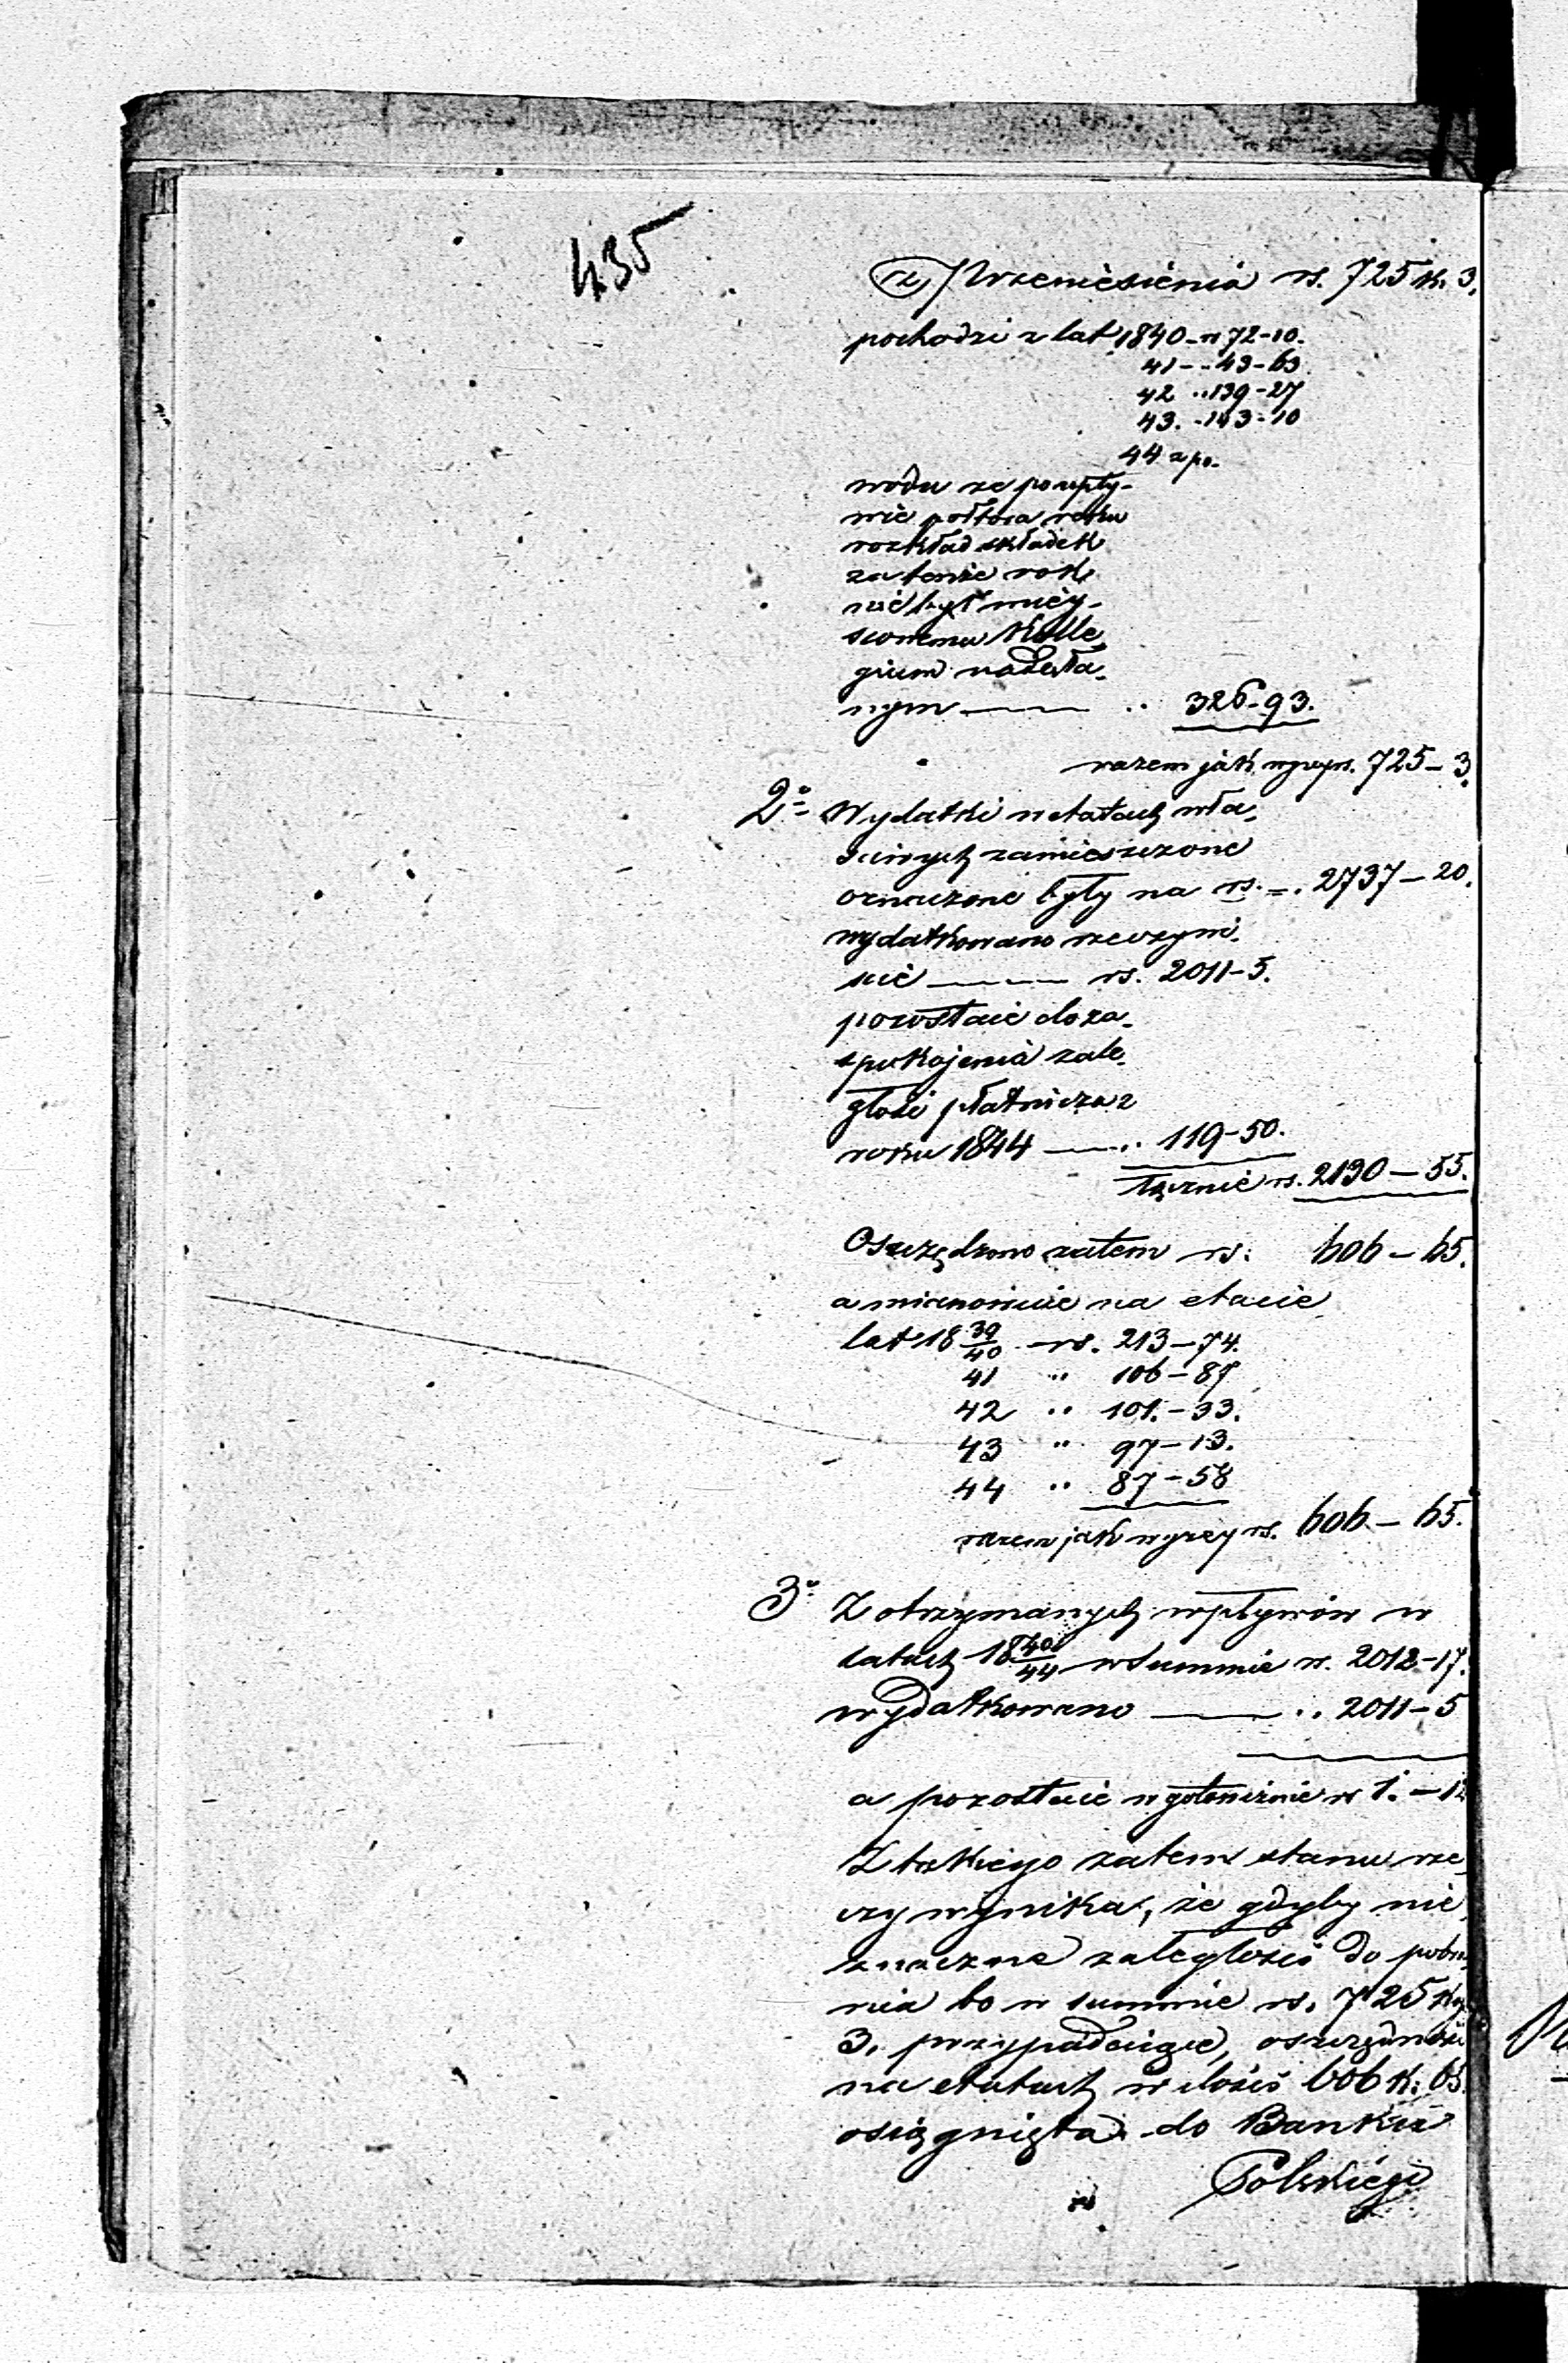 435
z Przeniesienia rs. 725 k. 3.
pochodzi z lat 1840 - rs 72-10.
41 - - 43-63.
42 .. 139-27
43. - 143-10
44 z po-
wodu że po upły-
wie półtora roku
rozkład składek
za tenże rok
nie był miey-
scowemu Kolle-
gium nadesła-
nym ——— .. 326-93.
razem jak wyżey rs. 725 - 3.
2o Wydatki w etatach wła-
ściwych zamieszczone
oznaczone były na rs. - . 2737 - 20.
wydatkowano rzeczywi-
ście ——— rs. 2011-5.
pozostaie do za-
spokojenia zale-
głość płatnicza z
roku 1844 ——— .. 119-50.
łącznie rs. 2130 - 55.
Oszczędzono zatem rs: 606 - 65.
a mianowicie na etacie
lat 18 39/40 - rs. 213 - 74.
41 " 106 - 87
42 .. 101. - 33.
43 " 97 - 13.
44 .. 87 - 58
razem jak wyżey rs. 606 - 65.
3o Z otrzymanych wpływów w
latach 18 40/44 w summie rs. 2012-17.
wydatkowano ——— .. 2011 - 5
a pozostaie w gotowiźnie rs 1. - 12
Z takiego zatem stanu rze-
czy wynika, że gdyby nie
znaczne zaległości do pobra-
nia bo w summie rs. 725 kp
3. przypadaiące, oszczędność
na etatach w ilości 606 k: 65.
osiągnięta do Banku
Polskiego